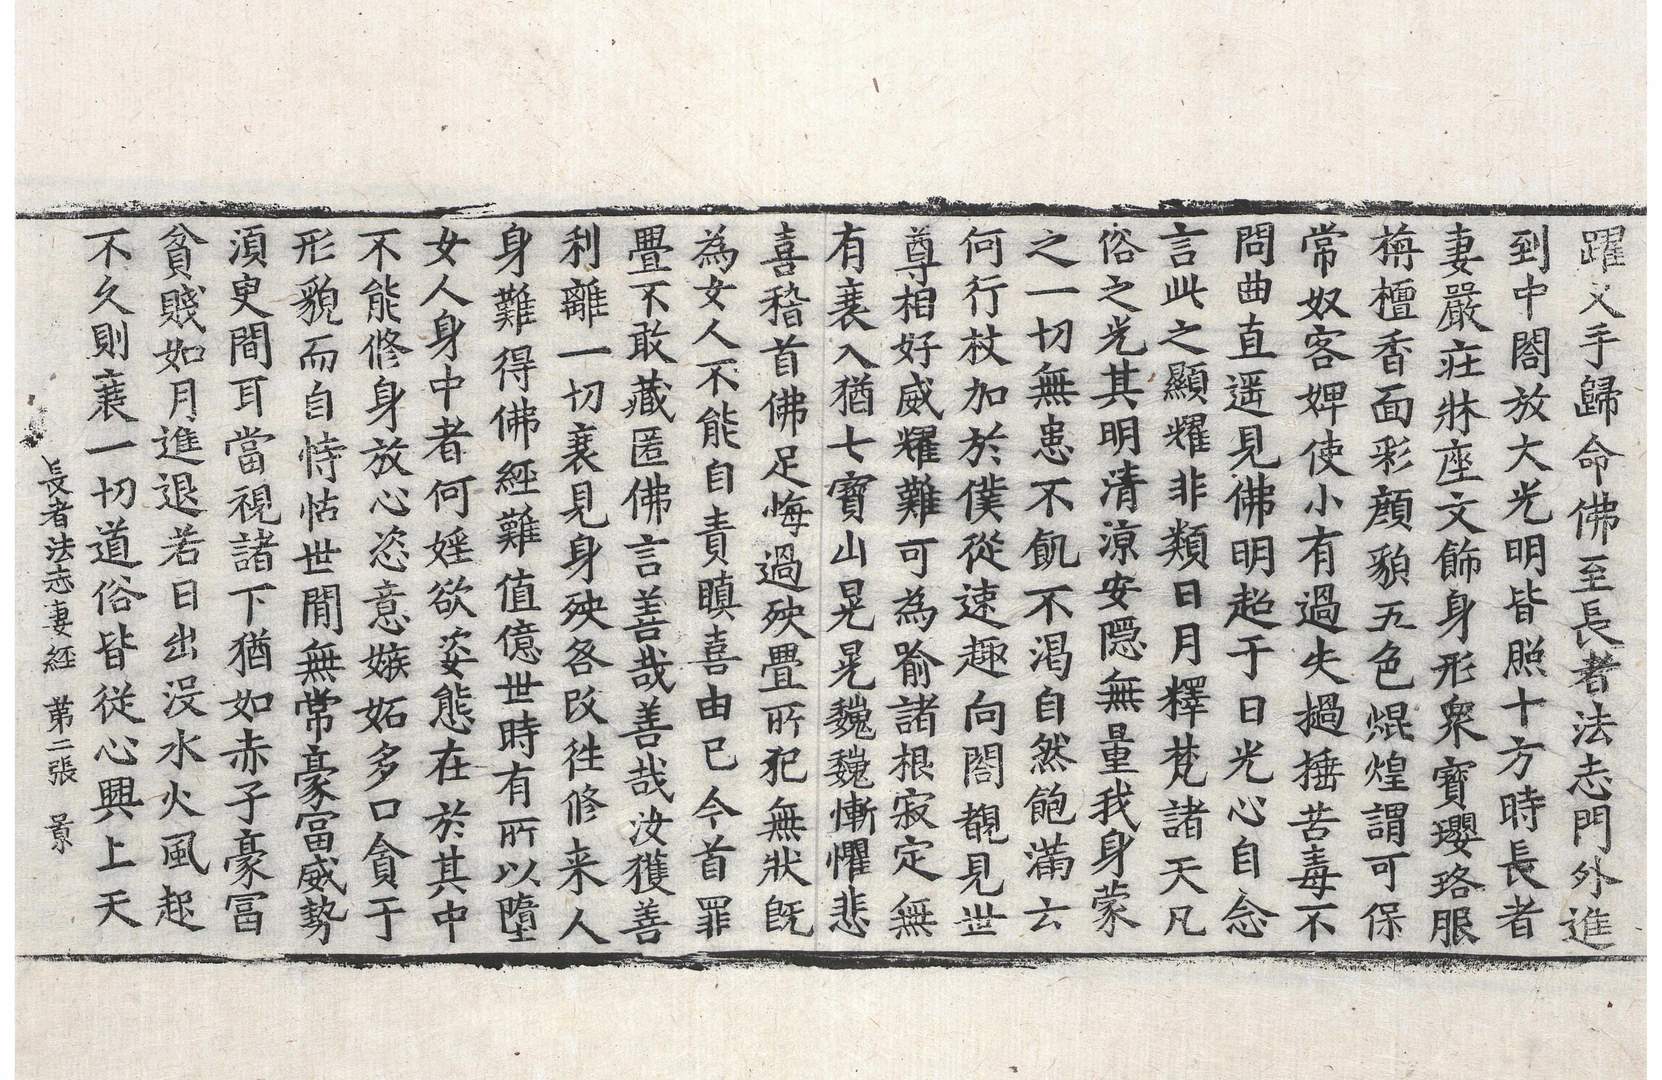 躍叉手歸命佛至長者法志門外進
到中閤放大光明皆照十方時長者
妻嚴莊牀座文飾身形衆寶瓔珞服
栴檀香面彩顔貌五色焜煌謂可保
常奴客婢使小有過失撾捶苦毒不
問曲直遥見佛明超于日光心自念
言此之顯耀非類日月釋梵諸天凡
俗之光其明清涼安隱無量我身蒙
之一切無患不飢不渴自然飽滿云
何行杖加於僕從速趣向閤覩見世
尊相好威耀難可為喻諸根寂定無
有衰入猶七寶山晃晃魏魏慚懼悲
喜稽首佛足悔過殃疊所犯無狀旣
為女人不能自責瞋喜由已今首罪
疊不敢藏匿佛言善哉善哉汝獲善
利離一切衰見身殃咎改徃修来人
身難得佛經難值億世時有所以墮
女人身中者何婬欲姿態在於其中
不能修身放心恣意嫉妬多口貪于
形貌而自恃怙世閒無常豪冨威勢
湏臾閒耳當視諸下猶如赤子豪冨
貧賤如月進退若日出没水火風起
不久則衰一切道俗皆從心興上天
長者法志妻經 第二張 景